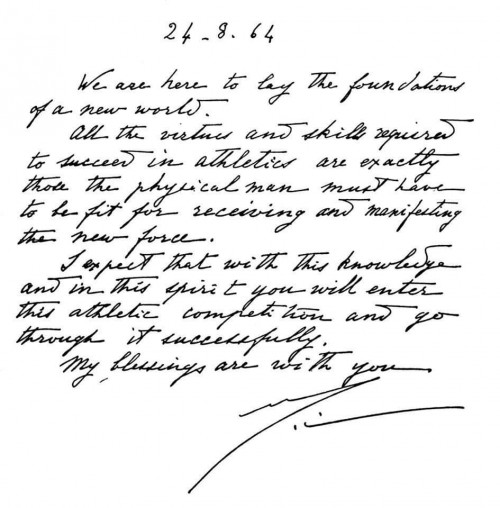 24-8.64
We are here to lay the foundations
of a new world.
All the virtues and skills required
to succeed in athletics are exactly
those the physical man must have
to be fit for receiving and manifesting
the new force.
I expect that with this knowledge
and in this spirit you will enter
this athletic competition and go
through it successfully.
My blessings are with you